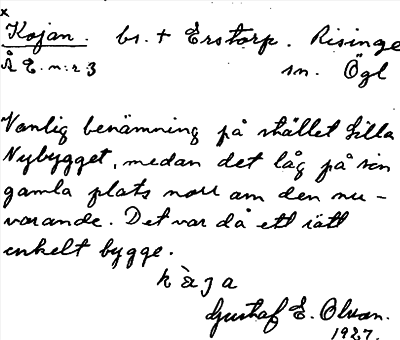 x
Kojan. bs. + Erstorp. Risinge
Å E. n:r 3 sn. Ögl
Vanlig benämning på stället Lilla
Nybygget, medan det låg på sin
gamla plats norr om den nu-
varande. Det var då ett rätt
enkelt bygge.
Gustaf E. Olson.
1927.